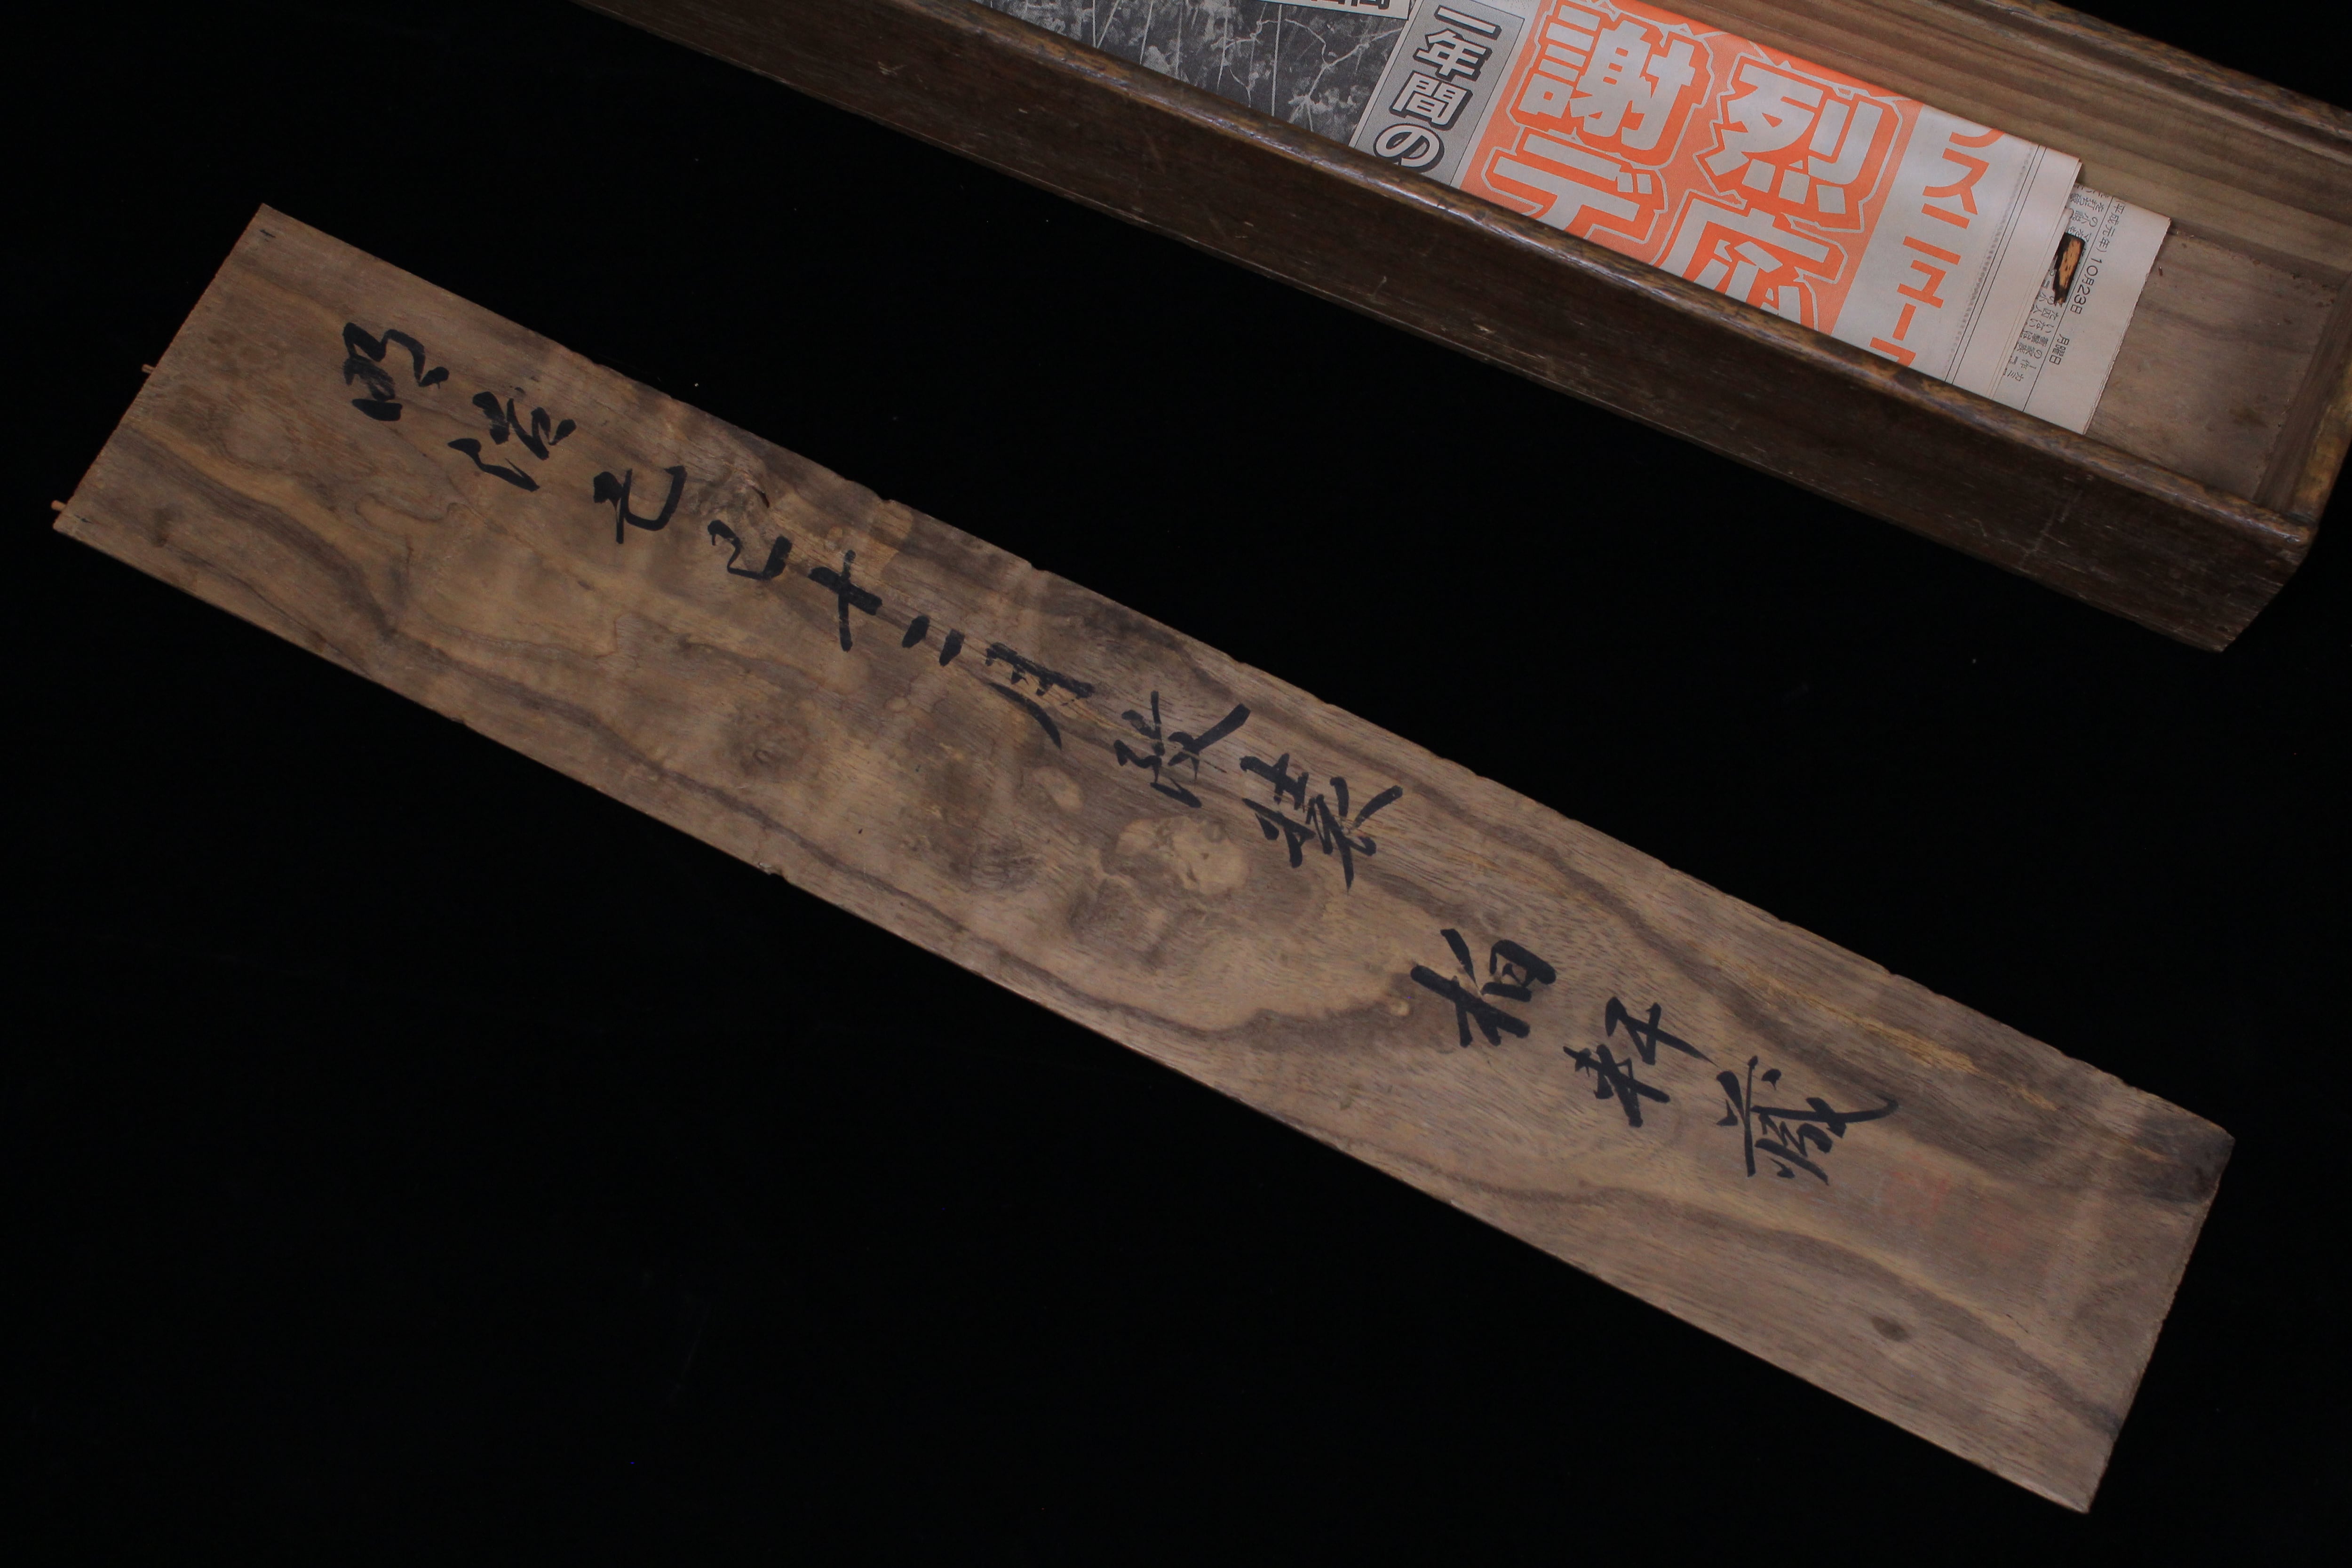 明治己巳十二月改装 柏軒蔵
スニュー
烈応
謝デ
二年間の
平成元年) 10月23日 月曜日